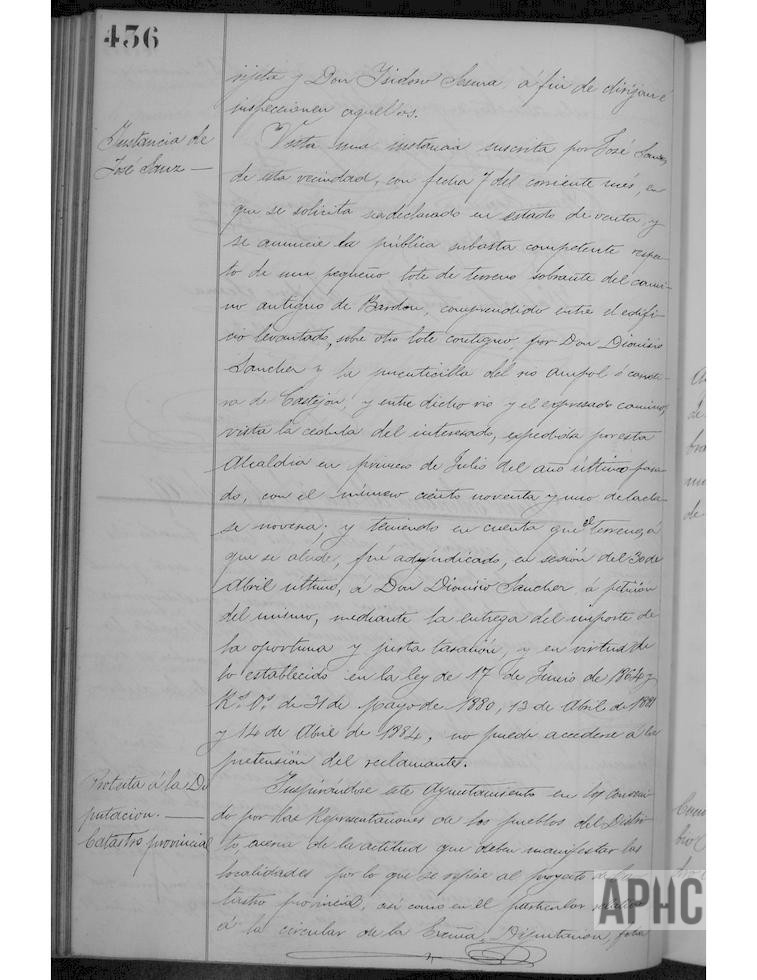 436
rijeta y Don Isidoro Sesma, á fin de dirijan é
inspeccionen aquellas.
Instancia de
José Sanz —
Vista una instancia suscrita por José Sanz,
de esta vecindad, con fecha 7 del corriente mes, en
que se solicita sea declarado en estado de venta, y
se anuncie la pública subasta competente respec-
to de un pequeño lote de terreno sobrante del cami-
no antiguo de Bardon, comprendido entre el edifi-
cio levantado, sobre otro lote contiguo por Don Dionisio
Sanchez y la puenticilla del rio ó carrete-
ra de Castejon, y entre dicho rio y el expresado camino,
vista la cédula del interesado, expedida por esta
Alcaldia en primero de Julio del año último pasa-
do, con el número ciento noventa y uno de la cla-
se novena; y teniendo en cuenta que el terreno, á
que se alude, fué adjudicado, en sesión del 30 de
Abril último, á Don Dionisio Sanchez, á petición
del mismo, mediante la entrega del importe de
la oportuna y justa tasación, y en virtud de
lo establecido en la ley de 17 de Junio de 1864 y
Rs. Os. de 31 de Mayo de 1880, 13 de Abril de 1881
y 14 de Abril de 1884, no puede accederse á la
pretensión del reclamante.
Protesta á la Di
putacion. —
Catastro provincial
Inspirándose este Ayuntamiento en lo conveni-
do por las Representaciones de los pueblos del Distri-
to, acerca de la actitud que deben manifestar las
localidades por lo que se refiere al proyecto de Ca-
tastro provincial, así como en el particular relativo
á la circular de la Excma. Diputación,
APHC